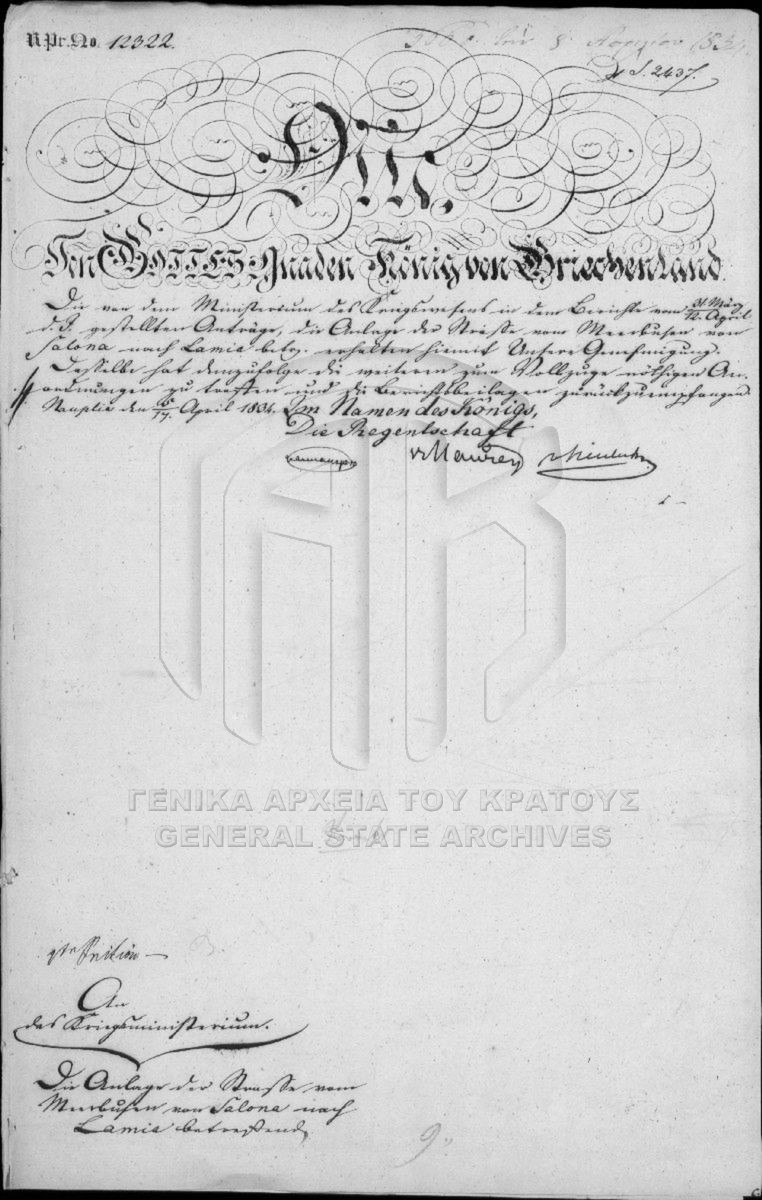 R. Pr. No. 12322.
8. 1834.
S. 2437.
OTTO.
Von GOTTES Gnaden König von Griechenland.
Die von dem Ministerium des Kriegswesens in dem Berichte vom 31 März / 12. April
d. J. gestellten Anträge, die Anlage der Strasse vom Meerbusen von
Salona nach Lamia betr. erhalten hiemit Unsere Genehmigung.
Dasselbe hat demzufolge die weiteren zum Vollzuge nöthigen An-
ordnungen zu treffen und die Berichtsbeilagen zurückzuempfangen.
Nauplia den 5/17. April 1834. Im Namen des Königs,
Die Regentschaft
Armansperg v Maurer v Heideck
ΓΕΝΙΚΑ ΑΡΧΕΙΑ ΤΟΥ ΚΡΑΤΟΥΣ
GENERAL STATE ARCHIVES
An
das Kriegsministerium.
Die Anlage der Strasse vom
Meerbusen von Salona nach
Lamia betreffend
9.